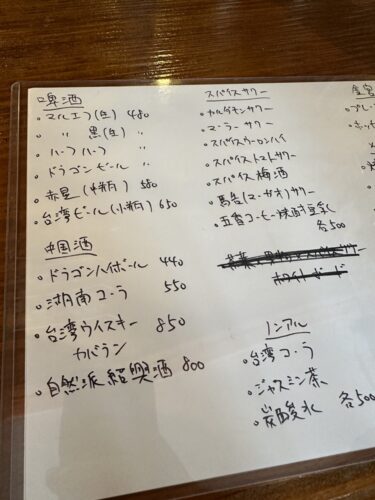 啤酒
・マルエフ(生) 480
・ 〃 黒(生) 〃
・ハーフハーフ 〃
・ドラゴンビール 〃
・赤星(中瓶)
・台湾ビール(小瓶) 650
中国酒
・ドラゴンハイボール 440
・湖南コーラ 550
・台湾ウイスキー 850
カバラン
・自然派紹興酒 800
スパイスサワー
・カルダモンサワー
・マーラーサワー
・スパイスウーロンハイ
・スパイストマトサワー
・スパイス梅酒
・馬告(マーガオ)サワー
・五香コーヒー焼酎豆乳
各500
ノンアル
・台湾コーラ
・ジャスミン茶
・炭酸水 各500
金宮
・プレ
・ホッピ